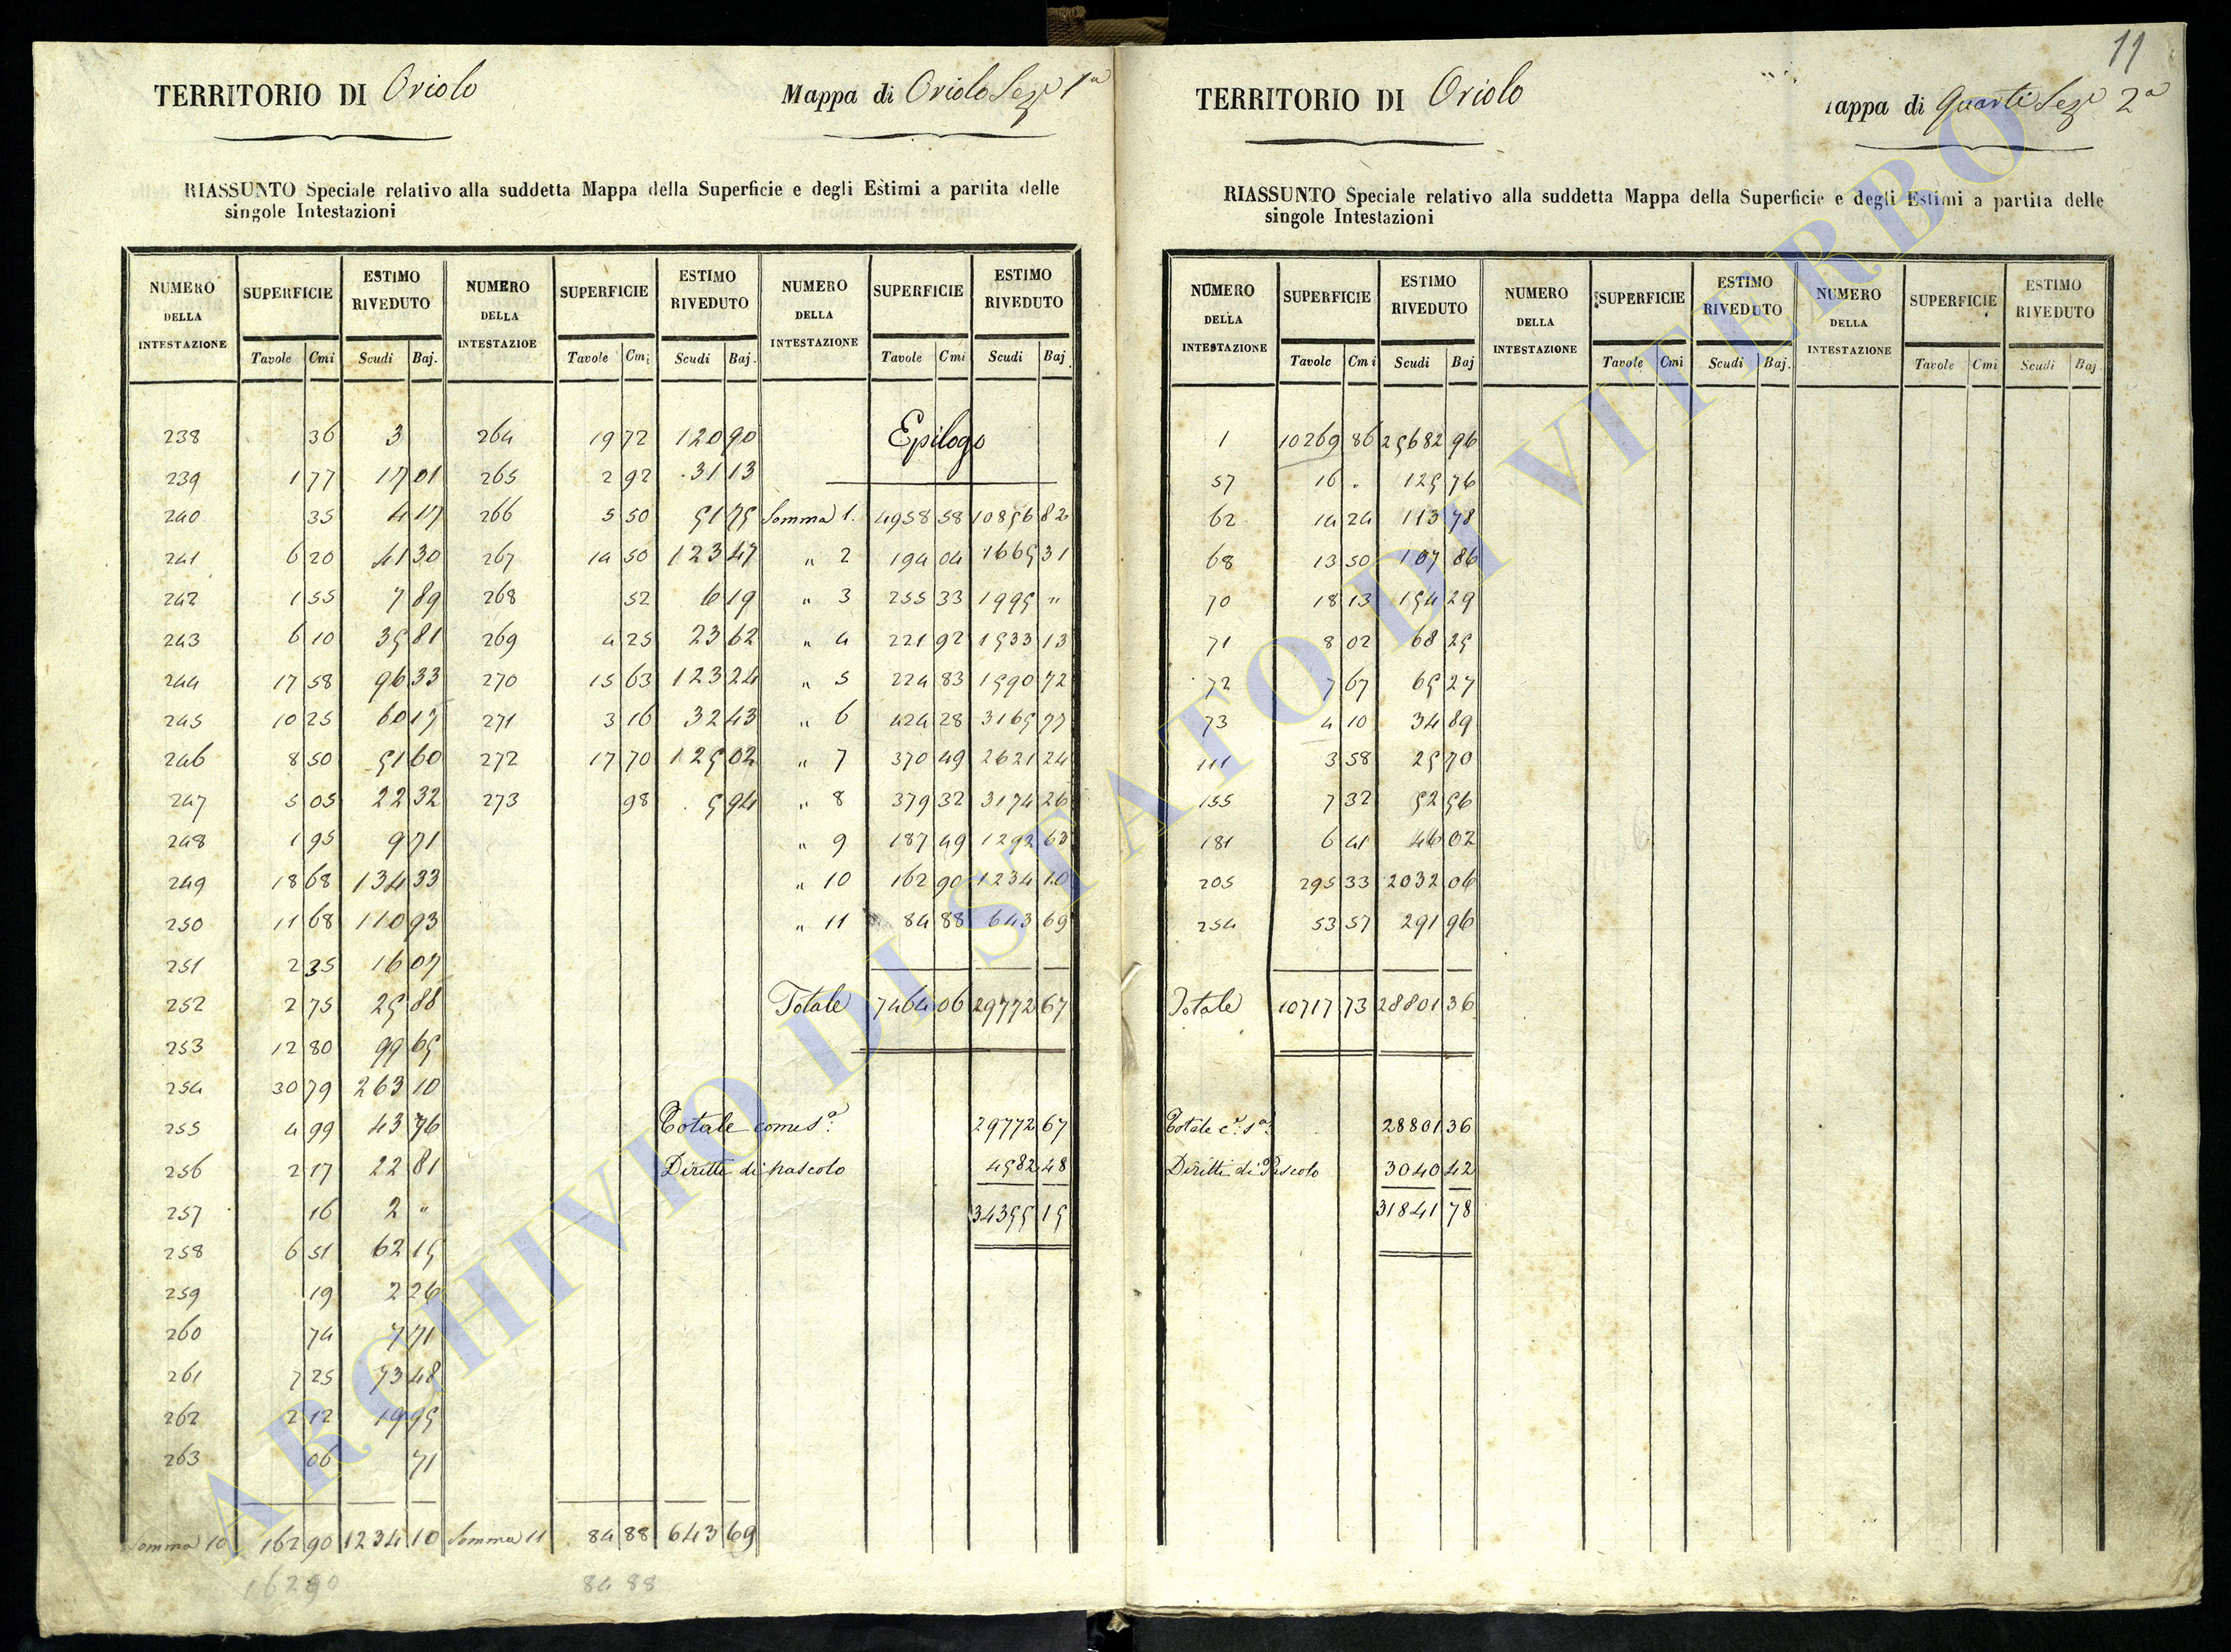 11
TERRITORIO DI Oriolo
Mappa di Oriolo Sez.e 1a
RIASSUNTO Speciale relativo alla suddetta Mappa della Superficie e degli Estimi a partita delle
singole Intestazioni
NUMERO DELLA INTESTAZIONE SUPERFICIE ESTIMO RIVEDUTO NUMERO DELLA INTESTAZIOE SUPERFICIE ESTIMO RIVEDUTO NUMERO DELLA INTESTAZIONE SUPERFICIE ESTIMO RIVEDUTO
Tavole Cmi Scudi Baj. Tavole Cmi Scudi Baj. Tavole Cmi Scudi Baj.
238 36 3 264 19 72 120 90 Epilogo
239 1 77 17 01 265 2 92 31 13
240 35 4 17 266 5 50 51 75 Somma 1. 4958 58 10856 82
241 6 20 41 30 267 14 50 123 47 " 2 194 04 1665 31
242 1 55 7 89 268 52 6 19 " 3 255 33 1995 "
243 6 10 35 81 269 4 25 23 62 " 4 221 92 1533 13
244 17 58 96 33 270 15 63 123 24 " 5 224 83 1590 72
245 10 25 60 17 271 3 16 32 43 " 6 424 28 3165 77
246 8 50 51 60 272 17 70 125 02 " 7 370 49 2621 24
247 5 05 22 32 273 98 5 94 " 8 379 32 3174 26
248 1 95 9 71 " 9 187 49 1292 63
249 18 68 134 33 " 10 162 90 1234 10
250 11 68 110 93 " 11 84 88 643 69
251 2 35 16 07
252 2 75 25 88 Totale 7464 06 29772 67
253 12 80 99 65
254 30 79 263 10
255 4 99 43 76 Totale come s.a 29772 67
256 2 17 22 81 Diritti di pascolo 4582 48
257 16 2 " 34355 15
258 6 51 62 15
259 19 2 26
260 74 7 71
261 7 25 73 48
262 2 12 19 95
263 06 71
Somma 10 162 90 1234 10 Somma 11 84 88 643 69
162 90 84 88
TERRITORIO DI Oriolo
appa di Quarti Sez.e 2a
RIASSUNTO Speciale relativo alla suddetta Mappa della Superficie e degli Estimi a partita delle
singole Intestazioni
NUMERO DELLA INTESTAZIONE SUPERFICIE ESTIMO RIVEDUTO NUMERO DELLA INTESTAZIONE SUPERFICIE ESTIMO RIVEDUTO NUMERO DELLA INTESTAZIONE SUPERFICIE ESTIMO RIVEDUTO
Tavole Cmi Scudi Baj Tavole Cmi Scudi Baj. Tavole Cmi Scudi Baj
1 10269 86 25682 96
57 16 . 125 76
62 14 24 113 78
68 13 50 107 86
70 18 13 154 29
71 8 02 68 25
72 7 67 65 27
73 4 10 34 89
111 3 58 25 70
155 7 32 52 56
181 6 41 46 02
205 295 33 2032 06
254 53 57 291 96
Totale 10717 73 28801 36
Totale c.e s.a 28801 36
Diritti di Pascolo 3040 42
31841 78
ARCHIVIO DI STATO DI VITERBO